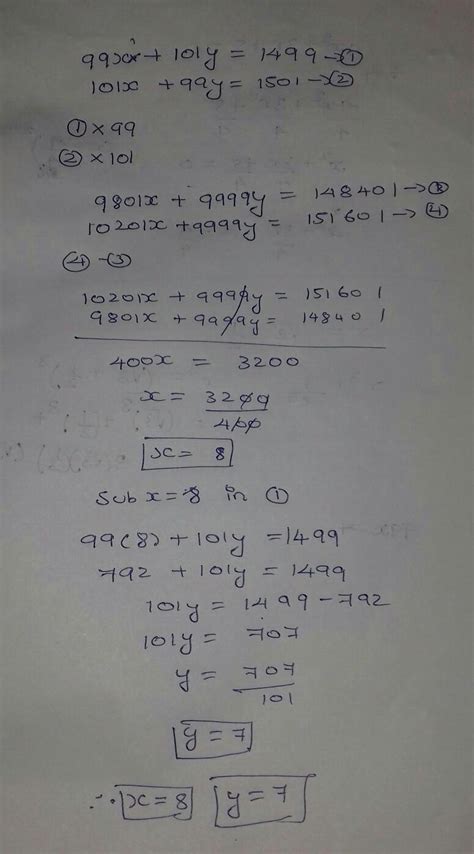 99x + 101y = 1499 → ①
101x + 99y = 1501 → ②
① × 99
② × 101
9801x + 9999y = 148401 → ③
10201x + 9999y = 151601 → ④
④ - ③
10201x + 9999y = 151601
9801x + 9999y = 148401
400x = 3200
x = 3200
400
x = 8
Sub x = 8 in ①
99(8) + 101y = 1499
792 + 101y = 1499
101y = 1499 - 792
101y = 707
y = 707
101
y = 7
∴ x = 8 y = 7